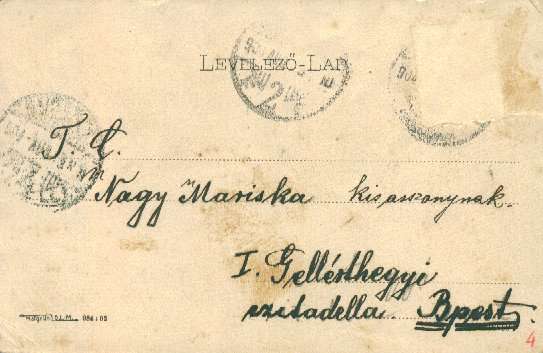 LEVELEZŐ-LAP
T. C.
Nagy Mariska kisasszonynak.
I. Gellérthegyi
czitadella. Bpest.
D.L.M. 084:03
4